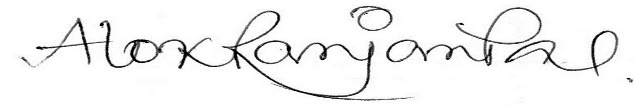 Alok Ranjan Pal.